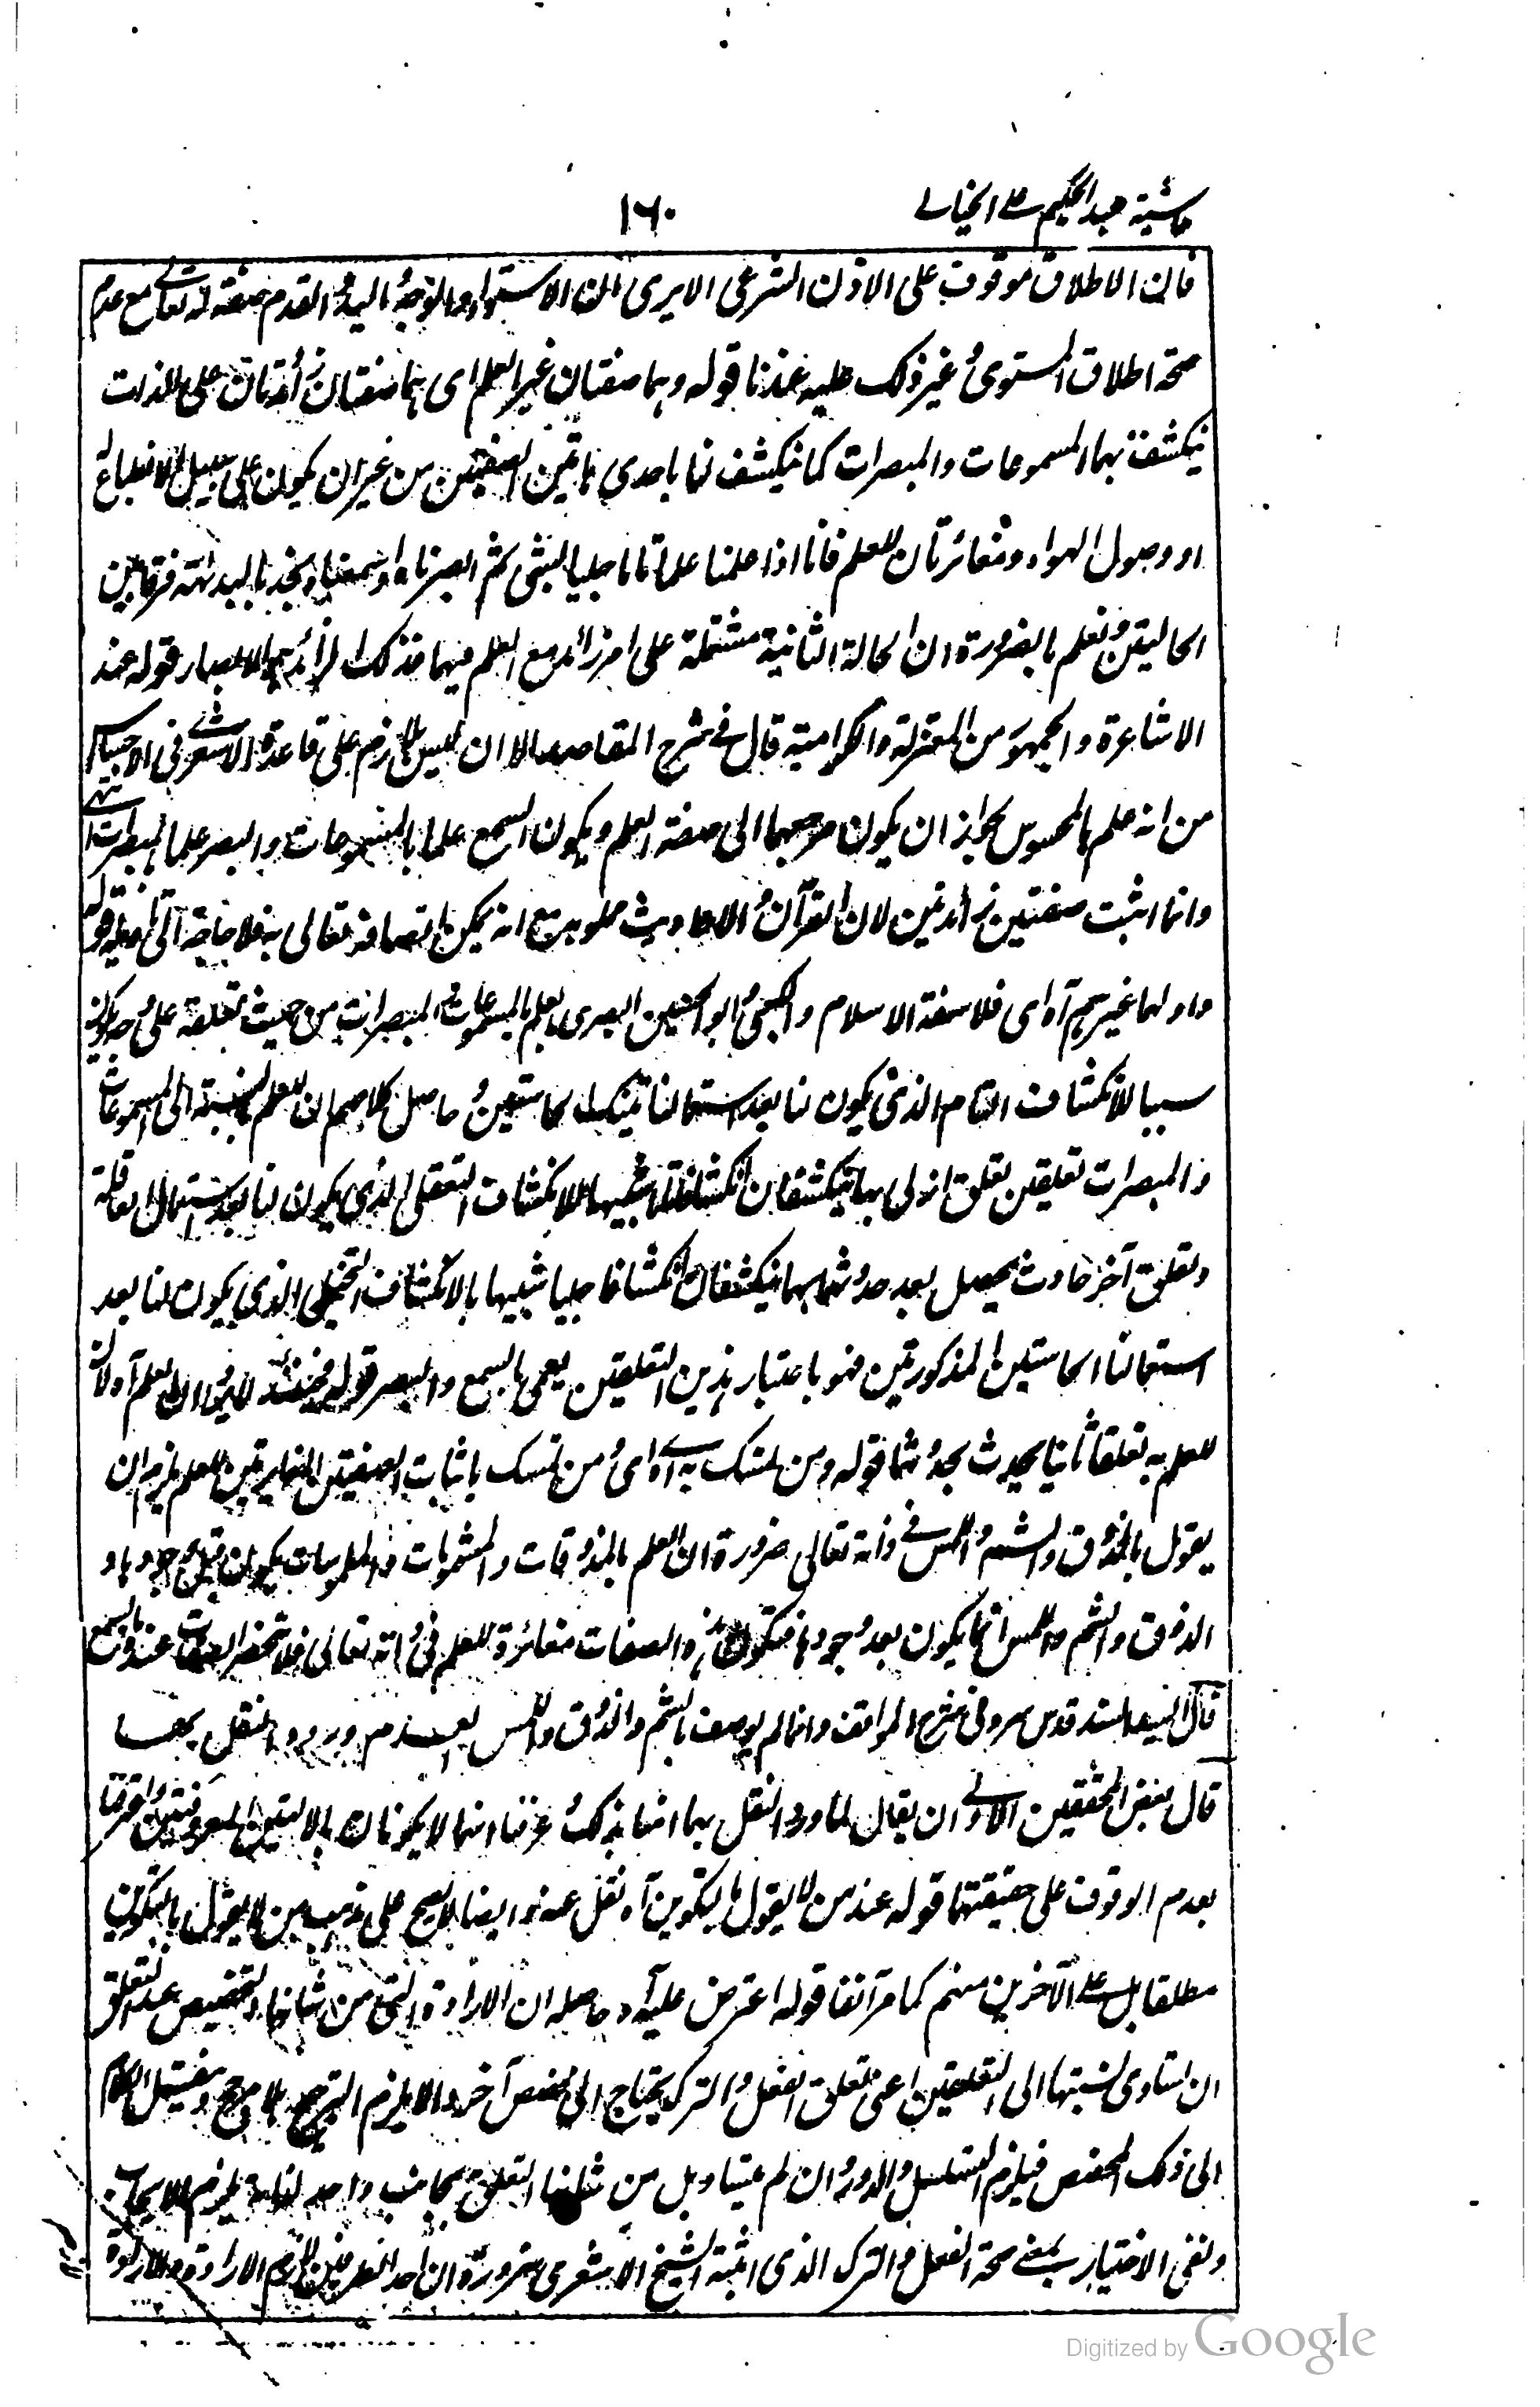 حاشية عبد الحكيم على الخيالے
١٦٠
فان الاطلاق موقوف على الاذن الشرعى الا يرى ان الاستواء والوجه واليد والقدم صفة له تعالى مع عدم
صحة اطلاق المستوى وغير ذلك عليه عندنا قوله وهما صفتان غير العلم اى هما صفتان زائدتان على الذات
ينكشف بهما المسموعات والمبصرات كما ينكشف لنا باحدى هاتين الصفتين من غير ان يكون على سبيل الانطباع
او وصول الهواء ومغائرتان للعلم فانا اذا علمنا علما تاما جليا بشئ ثم ابصرناه او سمعناه نجد بالبديهة فرقا بين
الحاليتن ونعلم بالضرورة ان الحالة الثانية مشتملة على امر زائد مع العلم فيهما فذلك الزائد هو الابصار قوله عند
الاشاعرة والجمهور من المعتزلة والكرامية قال فى شرح المقاصد الا ان ليس بلازم على قاعدة الاشعرى فى الاحساس
من انه علم بالمحسوس لجواز ان يكون مرجعهما الى صفة العلم ويكون السمع علما بالمسموعات والبصر علما بالمبصرات انتهى
وانما اثبت صفتين زائدتين لان القرآن والاحاديث مملو بهما مع انه يمكن اتصافه تعالى به فلا حاجة الى تاويله قوله
واولهما غيرهم آه اى فلاسفة الاسلام والكعبى وابو الحسين البصرى بالعلم بالمسموعات والمبصرات من حيث تعلقه على وجه يكون
سببا للانكشاف التام الذى يكون لنا بعد استعمالنا بتينك الحاستين وحاصل كلامهم ان للعلم بالنسبة الى المسموعات
والمبصرات تعلقين تعلق ازلى بهما ينكشفان انكشافا تاما شبيها للانكشاف التعقلى الذى يكون لنا بعد استعمال العاقلة
وتعلق آخر حادث يحصل بعد حدوثهما بهما ينكشفان انكشافا جليا شبيها بالانكشاف التخيلى الذى يكون لنا بعد
استعمالنا الحاستين المذكورتين فهو باعتبار هذين التعلقين يسمى بالسمع والبصر قوله فحينئذ لا يؤ ان العلم آه لان
للعلم به تعلقا ثانيا يحدث بحدوثهما قوله ومن تمسك به آه اى ومن تمسك باثبات الصفيتن المغايرتين للعلم يلزمه ان
يقول بالذوق والشم واللمس فى ذاته تعالى ضرورة ان العلم بالمذوقات والمشمومات والملموسات يكون قبل وجودها و
الذوق والشم واللمس انما يكون بعد وجودها فتكون هذه الصفات مغائرة للعلم فى ذاته تعالى فلا تنحصر الصفات عنده فى السبع
قال السيد السند قدس سره فى شرح المواقف وانما لم يوصف بالشم والذوق واللمس لعدم ورود النقل بها
قال بعض المحققين الاولى ان يقال لما ورد النقل بهما امنا بذلك وعرفنا انهما لا يكونان بالالتين المعروفتين واعترفنا
بعدم الوقوف على حقيقتهما قوله عند من لا يقول بالتكوين آه نقل عنه وايضا لا يصح على مذهب من لا يقول بالتكوين
مطلقا بل على الآخرين منهم كما مر آنفا قوله اعترض عليه آه حاصله ان الارادة التى من شانها التخصيص عند التعلق
ان تساوى نسبتها الى التعلقين اعنى تعلق الفعل والترك يحتاج الى مخصص آخر والا يلزم الترجيح بلا مرجح وننقل الكلام
الى ذلك المخصص فيلزم التسلسل والدور وان لم يتساو بل من شانها التعلق بجانب واحد لذاته يلزم الايجاب
ونفى الاختيار بمعنى صحة الفعل والترك الذى اثبته الشيخ الاشعرى ضرورة ان احد الطرفين لازم الارادة والارادة
Digitized by Google